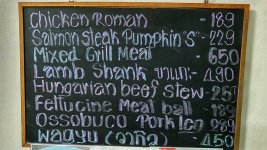 Chicken Roman - 189
Salmon Steak Pumpkin S - 229
Mixed Grill Meal - 650
Lamb Shank ขาแกะ - 490
Hungarian beef stew -
Fettucine Meat ball
OSSOBUCO Pork leg 289
Wagyu (วากิว) - 450